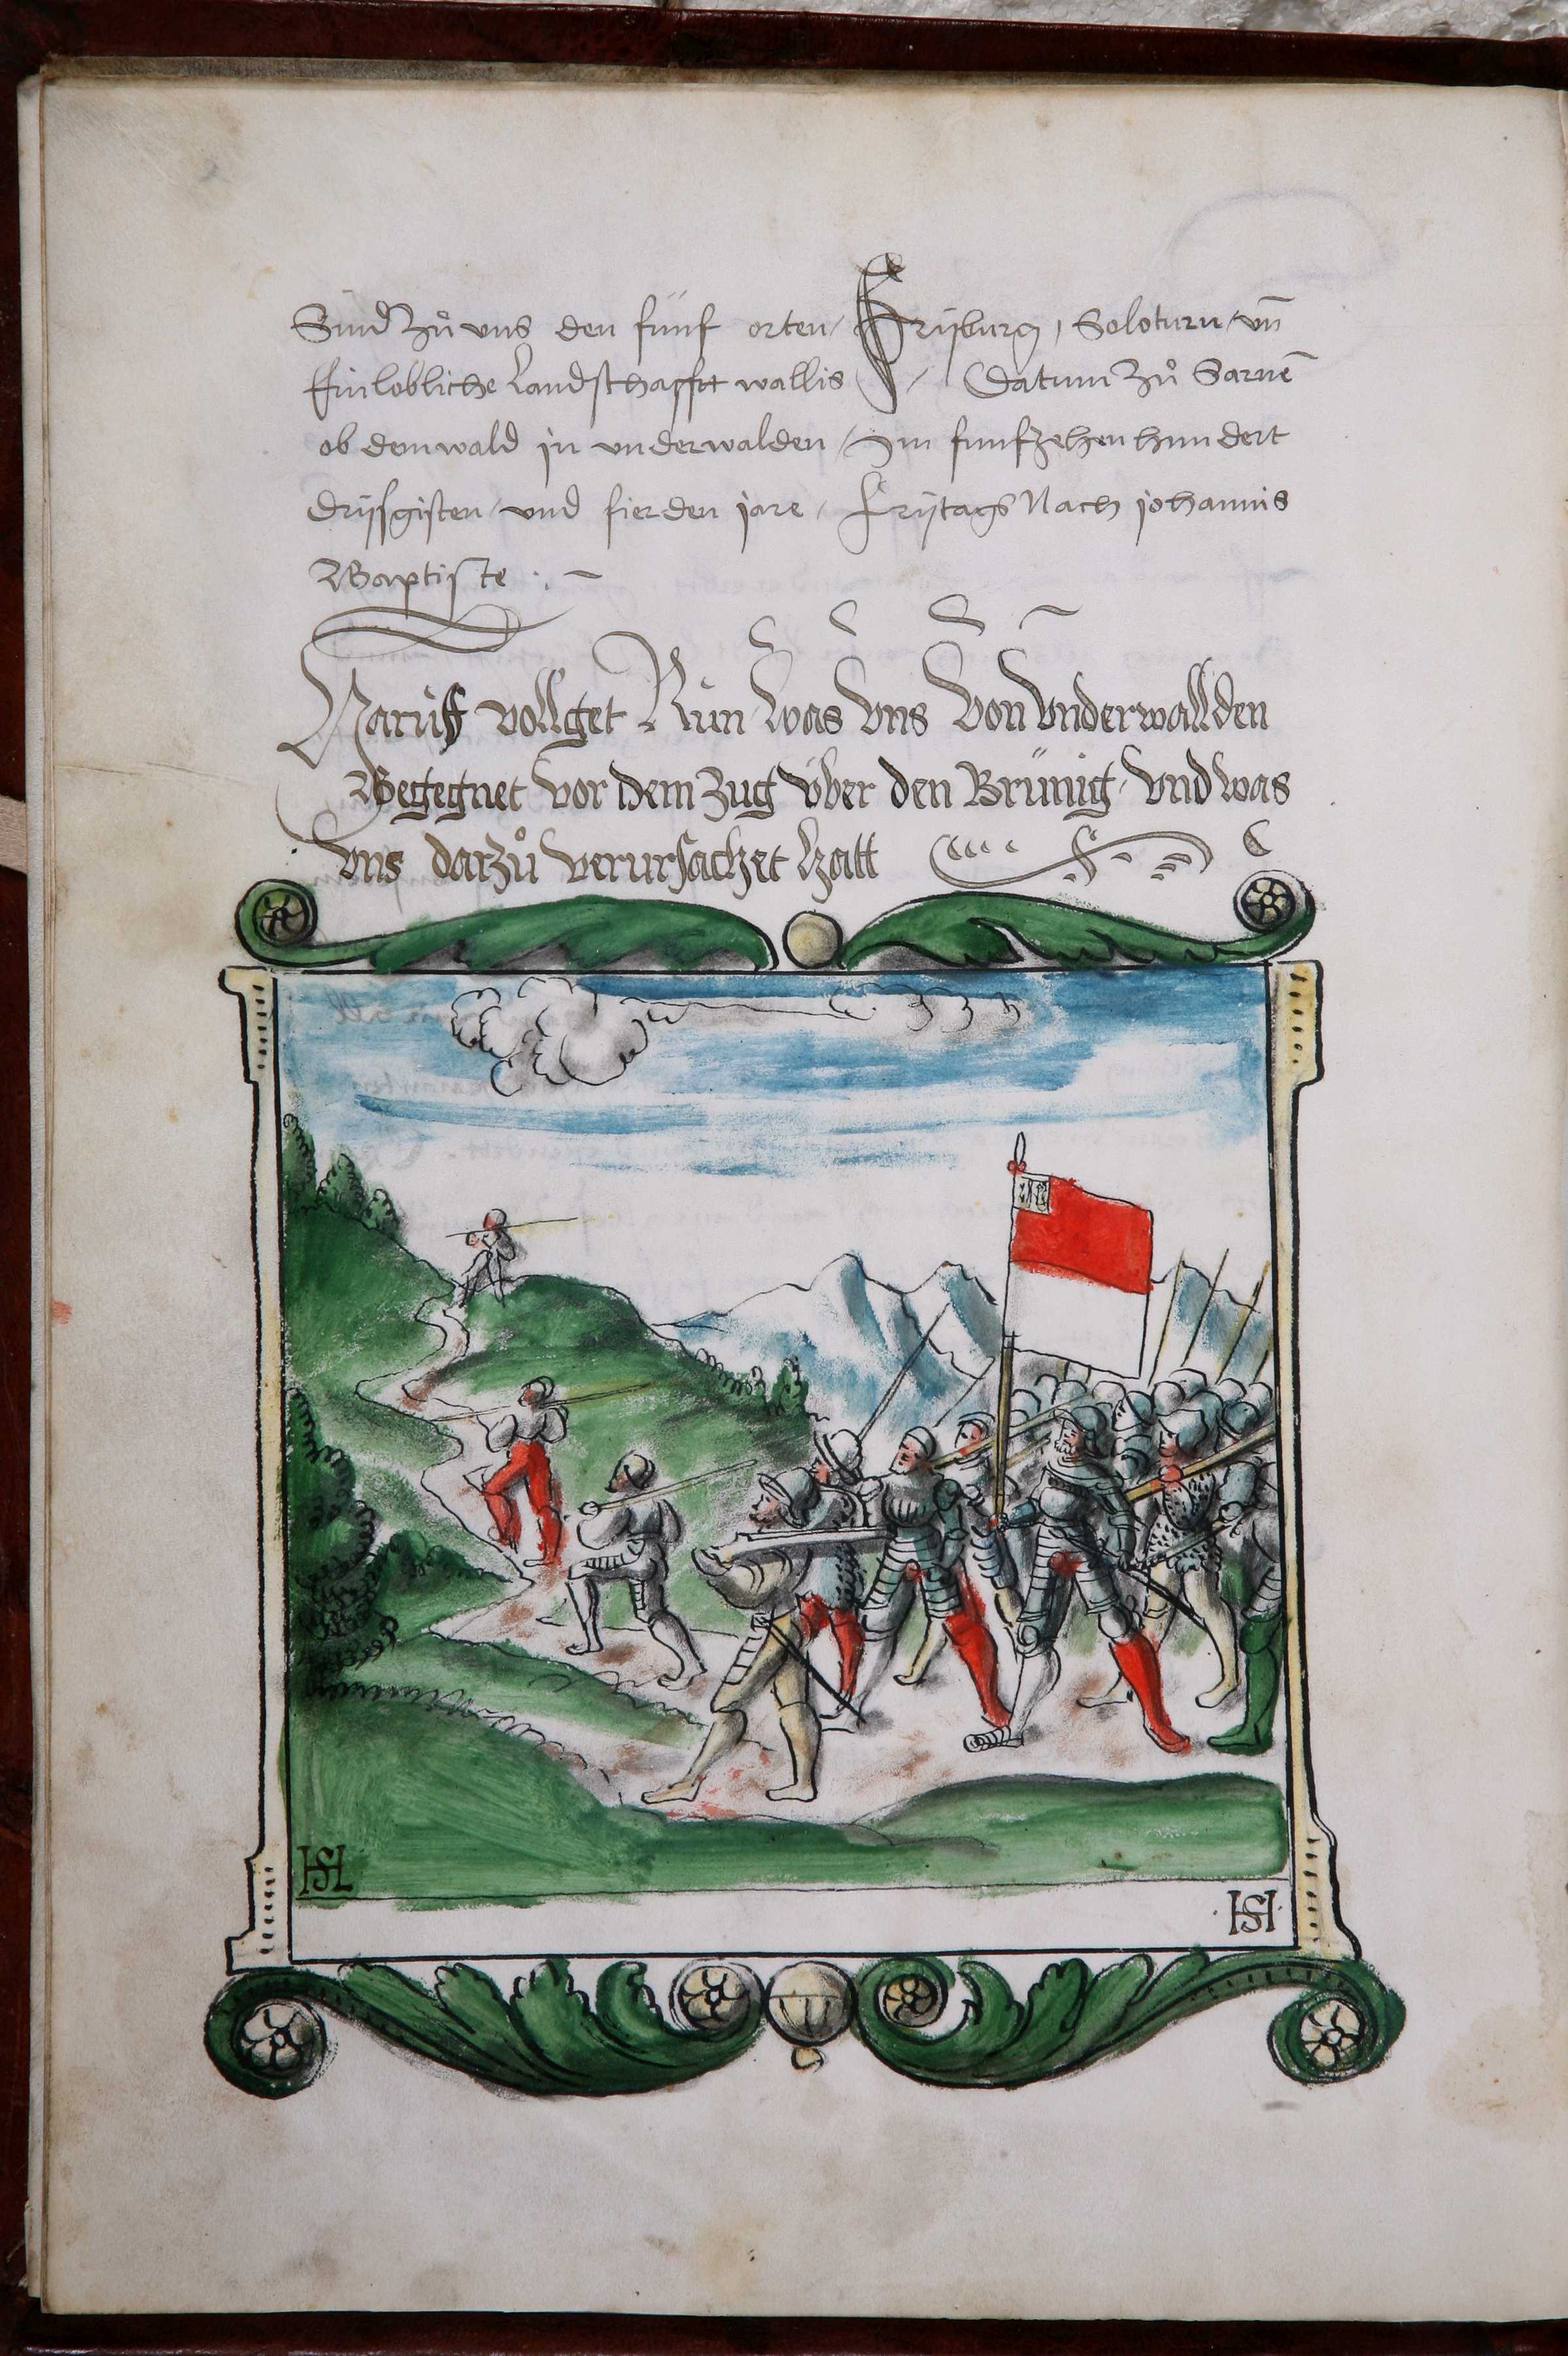 Sind zů uns den fünf orten / Frÿburg / Soloturn / vn̄
Ein lobliche Landschafft wallis / Datum zů Sarnē
ob dem wald in underwalden / Im funfzehen hundert
drÿsgisten / und fierden jare / Frÿtags Nach johannis
Baptiste :. –
Daruff vollget Nün was vns von vnderwallden
Begegnet vor dem zug über den Brünig / vnd was
vns darzů verursachet hatt
HSL
·HSI·